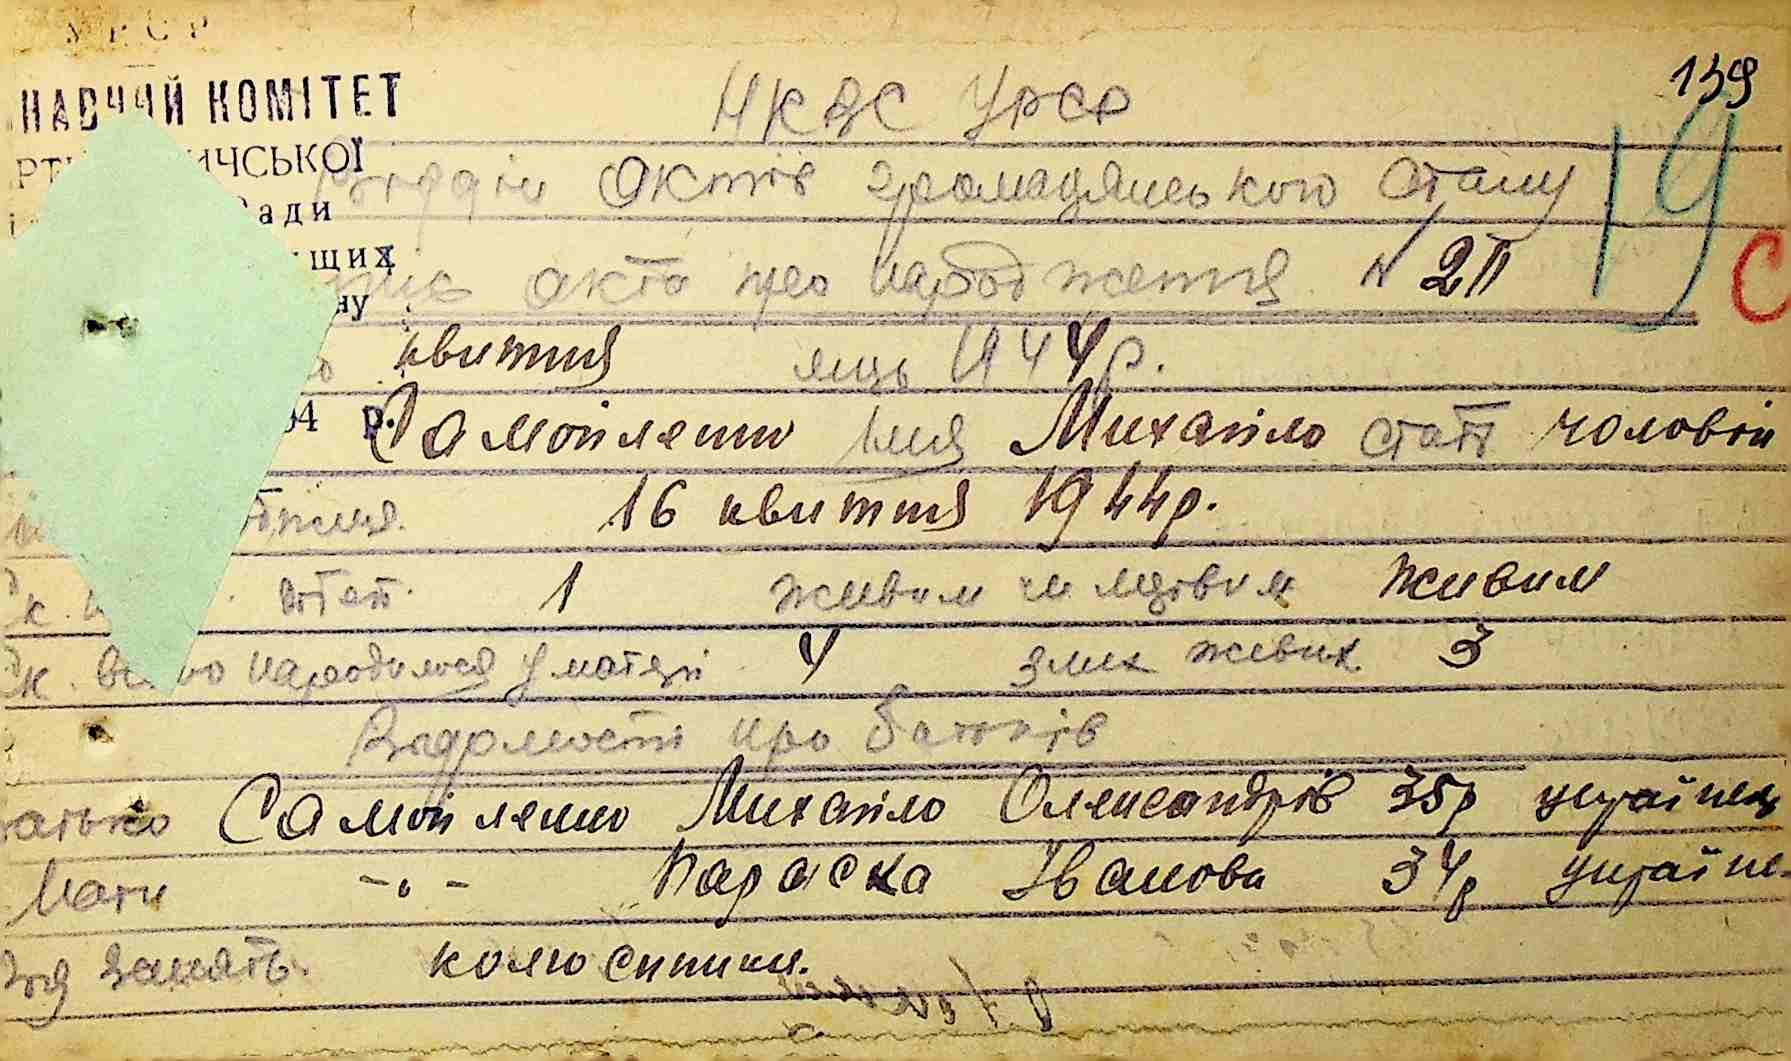 УРСР
НАВЧИЙ КОМІТЕТ
НКВС УРСР
139
19
ИЧСЬКОЇ
актів громадянського стану
Ради
С
ущих
акта про народження N 2П
ну
квітня
1944р.
34 р.
Самойленко імя Михайло стать чоловіч
16 квітня 1944р.
дітей. 1 живим чи мертвим живим
народилося у матері 4 з них живих 3
Відомості про батьків
батько Самойленко Михайло Олександрів 35р українец
Мати -"- Параска Іванова 34р україн.
занять. колгоспники.